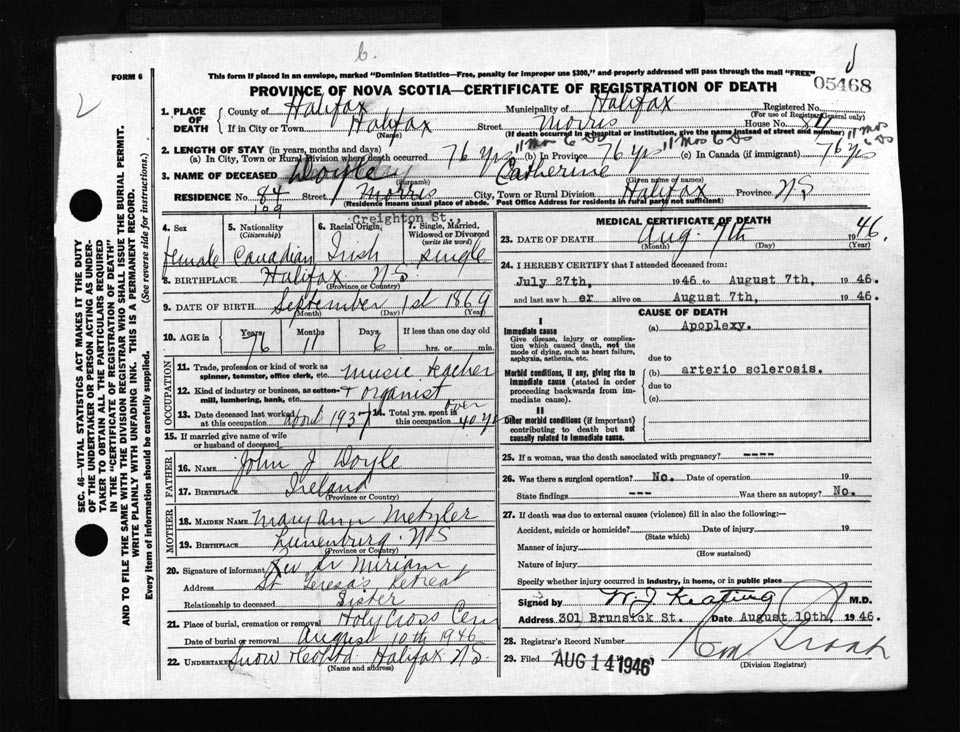 6.
FORM 6
This form if placed in an envelope, marked "Dominion Statistics—Free, penalty for improper use $300," and properly addressed will pass through the mail "FREE"
PROVINCE OF NOVA SCOTIA—CERTIFICATE OF REGISTRATION OF DEATH
05468
1. PLACE OF DEATH
County of Halifax Municipality of Halifax Registered No.
(For use of Registrar General only)
If in City or Town Halifax Street Morris House No. 84
(Name) (If death occurred in hospital or institution, give the name instead of street and number)
2. LENGTH OF STAY (in years, months and days) 11 Mos 6 Ds 11 Mos 6 Ds 11 Mos 6 Ds
(a) In City, Town or Rural Division where death occurred 76 yrs (b) In Province 76 yrs (c) In Canada (if immigrant) 76 yrs
3. NAME OF DECEASED Doyle Catherine
(Surname) (Given name or names)
RESIDENCE No. 84 Street Morris City, Town or Rural Division Halifax Province N S
109 (Residence means usual place of abode. Post Office Address for residents in rural parts not sufficient)
Creighton St.,
4. Sex 5. Nationality (Citizenship) 6. Racial Origin 7. Single, Married, Widowed or Divorced (write the word)
female Canadian Irish single
8. BIRTHPLACE Halifax N-S
(Province or Country)
9. DATE OF BIRTH September 1st 1869
(Month) (Day) (Year)
10. AGE in Years Months Days If less than one day old
76 11 6 hrs. or min.
OCCUPATION
11. Trade, profession or kind of work as spinner, teamster, office clerk, etc. music teacher
12. Kind of industry or business, as cotton-mill, lumbering, bank, etc. + organist
13. Date deceased last worked at this occupation about 1937 14. Total yrs. spent in this occupation over 40 yrs
15. If married give name of wife or husband of deceased
FATHER
16. NAME John J Doyle
17. BIRTHPLACE Ireland
(Province or Country)
MOTHER
18. MAIDEN NAME Mary Ann Metzler
19. BIRTHPLACE Lunenburg N S
(Province or Country)
20. Signature of informant Rev Sr Miriam
Address St Teresa's Retreat
Relationship to deceased Sister
21. Place of burial, cremation or removal Holy Cross Cem
Date of burial or removal August 10th 1946
22. UNDERTAKER Snow Halifax N S.
(Name and address)
MEDICAL CERTIFICATE OF DEATH
23. DATE OF DEATH Aug. 7th 1946.
(Month) (Day) (Year)
24. I HEREBY CERTIFY that I attended deceased from:
July 27th, 1946 to August 7th, 1946.
and last saw h er alive on August 7th, 1946.
CAUSE OF DEATH
I
Immediate cause (a) Apoplexy.
Give disease, injury or complication which caused death, not the mode of dying, such as heart failure, asphyxia, asthenia, etc.
due to
Morbid conditions, if any, giving rise to immediate cause (stated in order proceeding backwards from immediate cause).
(b) arterio sclerosis.
due to
(c)
II
Other morbid conditions (if important) contributing to death but not causally related to immediate cause.
25. If a woman, was the death associated with pregnancy? ----
26. Was there a surgical operation? No. Date of operation 19
State findings --- Was there an autopsy? No.
27. If death was due to external causes (violence) fill in also the following:—
Accident, suicide or homicide? Date of injury 19
(State which)
Manner of injury
(How sustained)
Nature of injury
Specify whether injury occurred in industry, in home, or in public place
Signed by W. J Keating M.D.
Address 301 Brunsick St. Date August 10th, 1946.
28. Registrar's Record Number
29. Filed AUG 14 1946
(Division Registrar)
SEC. 46—VITAL STATISTICS ACT MAKES IT THE DUTY
OF THE UNDERTAKER OR PERSON ACTING AS UNDER-
TAKER TO OBTAIN ALL THE PARTICULARS REQUIRED
IN THE "CERTIFICATE OF REGISTRATION OF DEATH"
AND TO FILE THE SAME WITH THE DIVISION REGISTRAR WHO SHALL ISSUE THE BURIAL PERMIT.
WRITE PLAINLY WITH UNFADING INK. THIS IS A PERMANENT RECORD.
Every item of information should be carefully supplied. (See reverse side for instructions.)